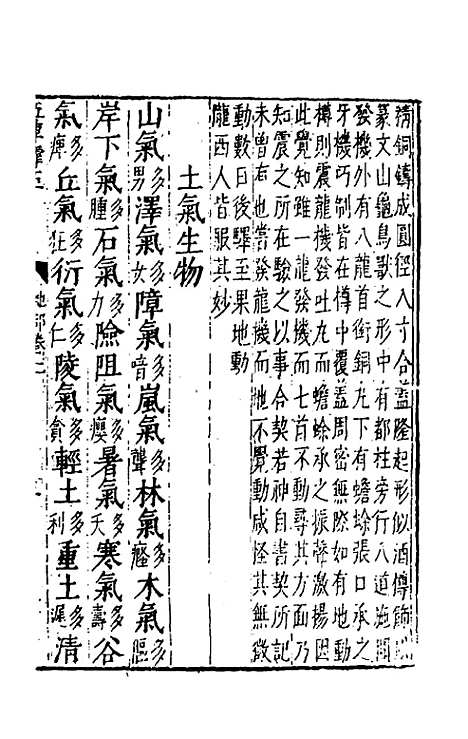 精銅鑄成圓徑八寸合蓋隆起形似酒樽飾以
篆文山龜鳥獸之形中有都柱旁行八道施關
發機外有八龍首銜銅丸下有蟾蜍張口承之
牙機巧制皆在樽中覆蓋周密無際如有地動
樽則震龍機發吐丸而蟾蜍承之振聲激揚因
此覺知雖一龍發機而七首不動尋其方面乃
知震之所在驗之以事合契若神自書契所記
未曾有也嘗發龍機而地不覺動咸怪其無徵
動數日後驛至果地動
隴西人皆服其妙
土氣生物
山氣多男澤氣多女障氣多喑嵐氣多聾林氣多癃木氣多傴
岸下氣多腫石氣多力險阻氣多癭暑氣多夭寒氣多壽谷
氣多痺丘氣多狂衍氣多仁陵氣多貪輕土多利重土多遲清
地部卷二